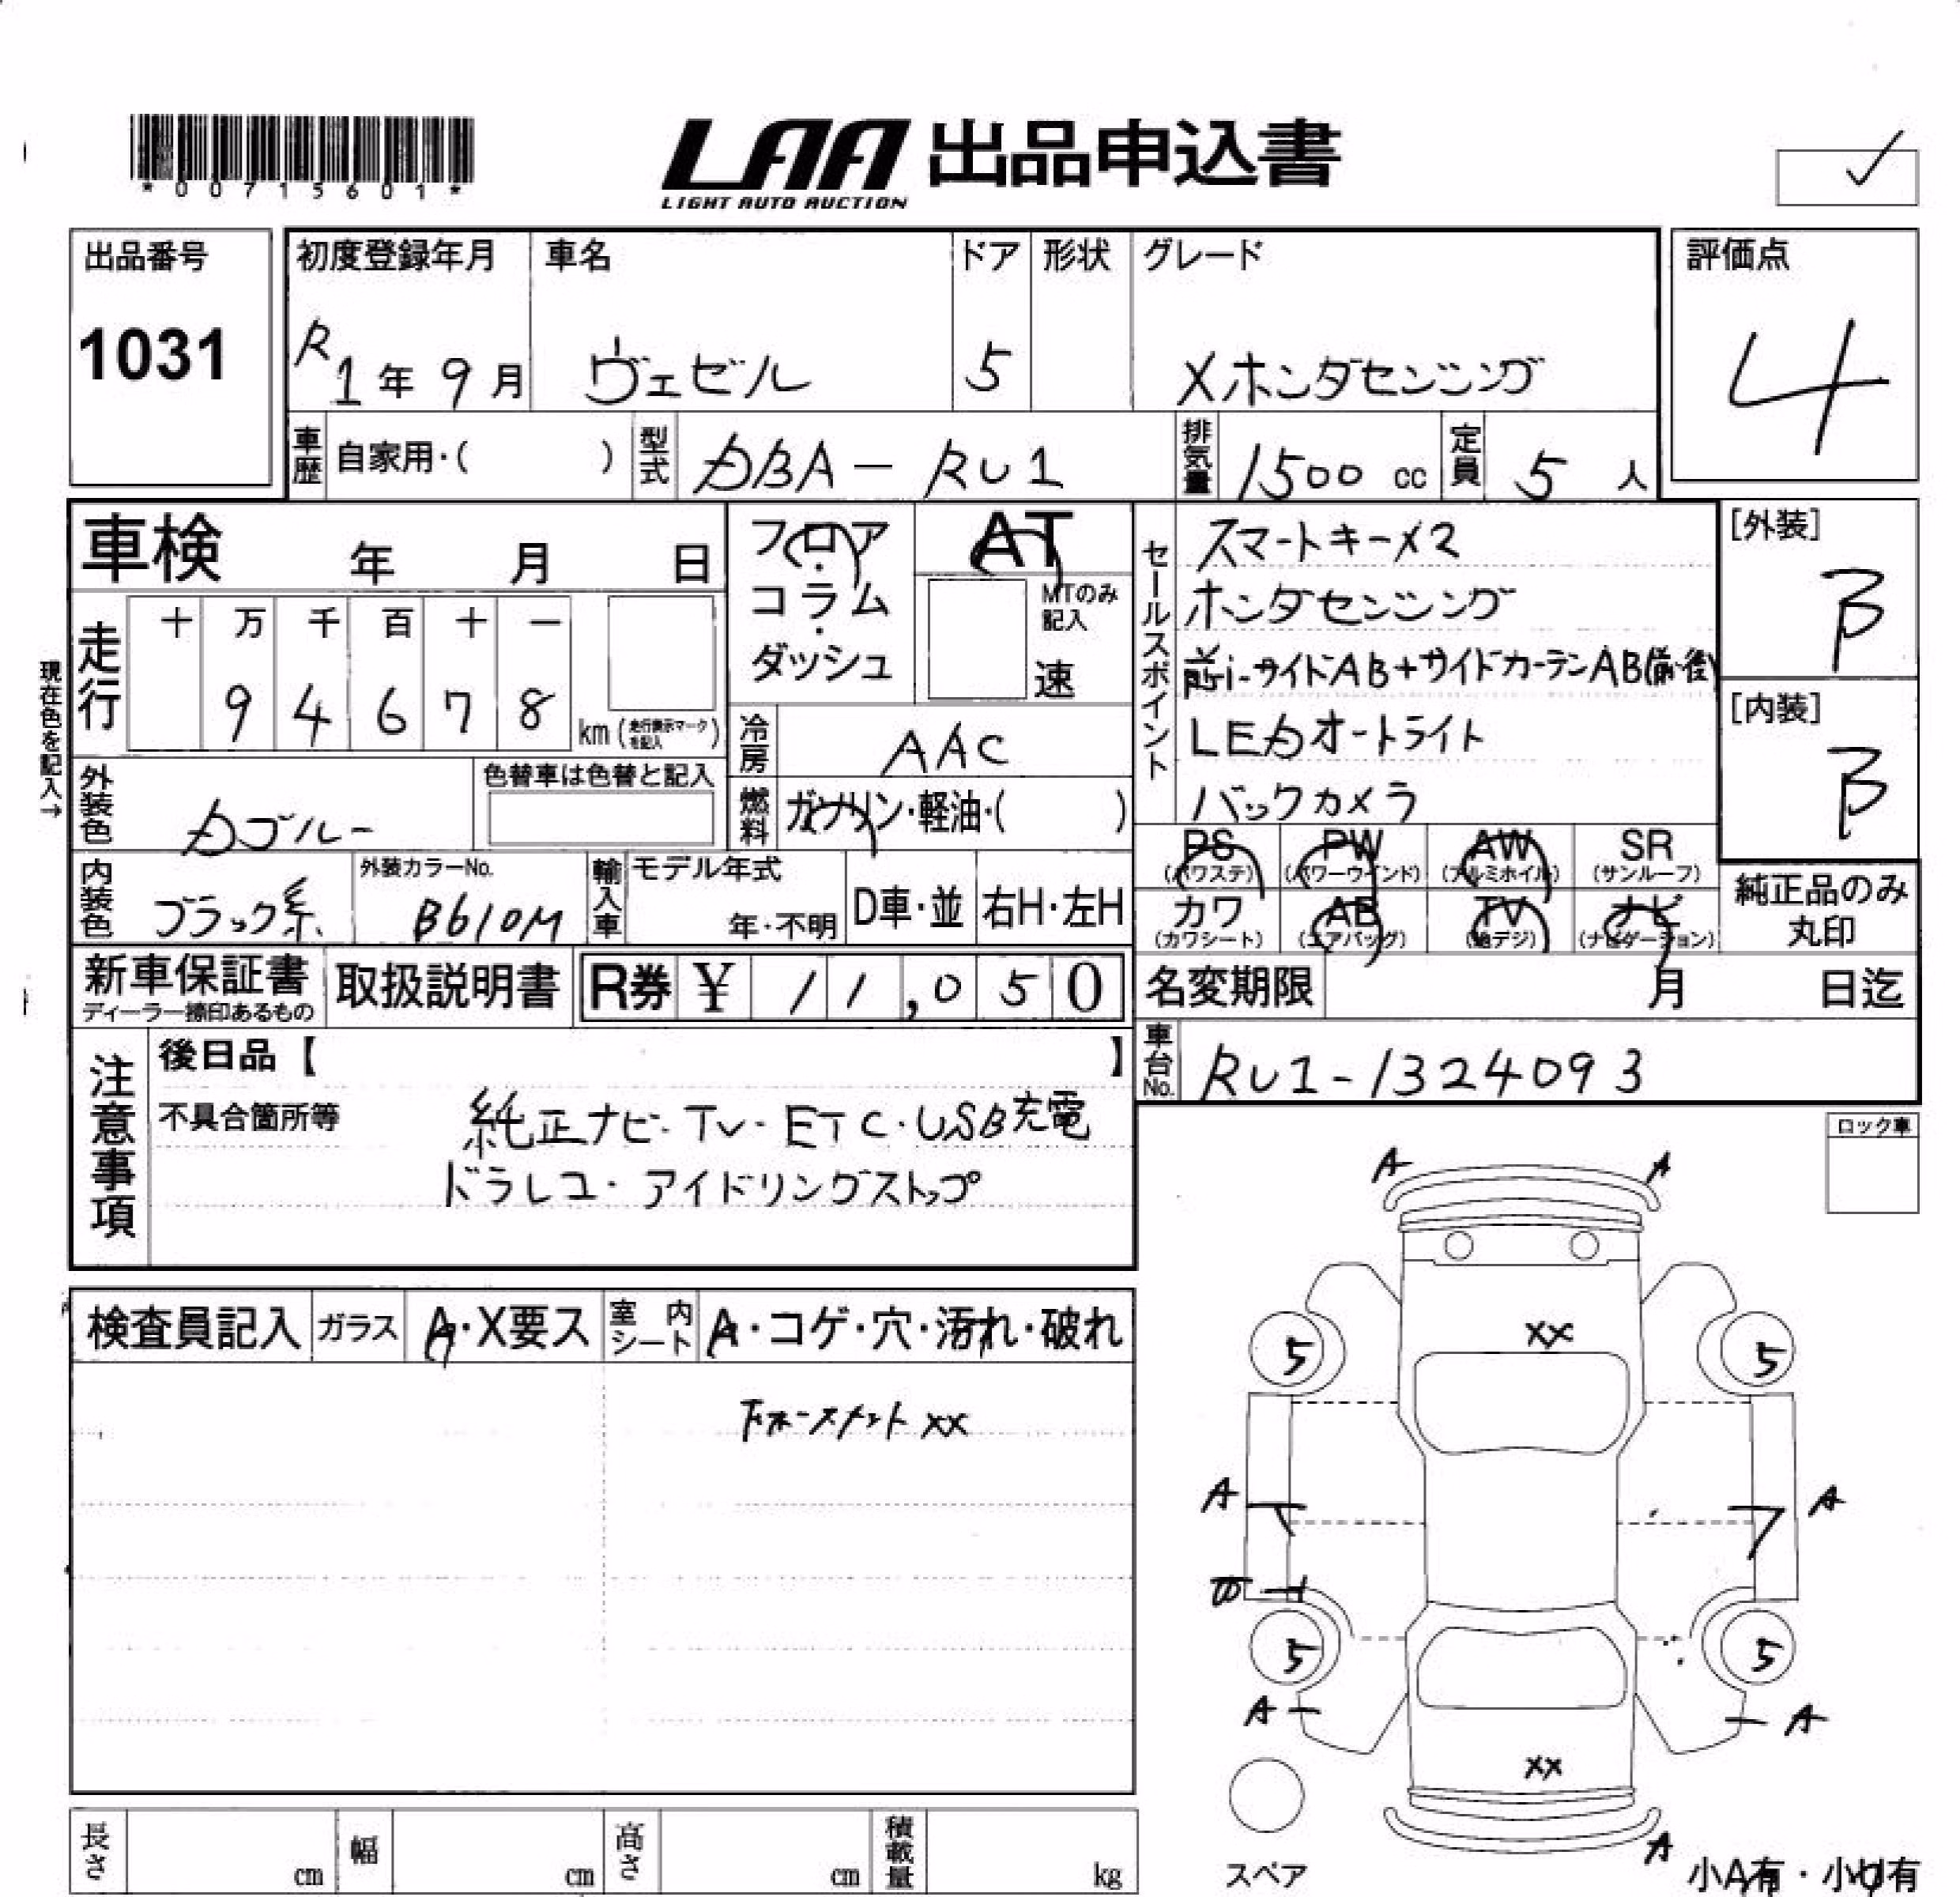 *00715601*
LAA 出品申込書
LIGHT AUTO AUCTION
出品番号
1031
初度登録年月
R1年9月
車名
ヴェゼル
ドア
5
形状
グレード
Xホンダセンシング
評価点
4
車歴 自家用・( )
型式 DBA-RU1
排気量 1500 cc
定員 5 人
車検 年 月 日
走行
十 万 千 百 十 一
9 4 6 7 8
km (走行表示マークを記入)
現在色を記入→
フロア・コラム・ダッシュ
AT
MTのみ記入
速
冷房 AAC
燃料 ガソリン・軽油・( )
セールスポイント
スマートキー×2
ホンダセンシング
前i-サイドAB+サイドカーテンAB(前後)
LEDオートライト
バックカメラ
[外装]
B
[内装]
B
外装色 Dブルー
色替車は色替と記入
内装色 ブラック系
外装カラーNo.
B610M
輸入車 モデル年式
年・不明
D車・並 右H・左H
PS (パワステ)
PW (パワーウインド)
AW (アルミホイル)
SR (サンルーフ)
カワ (カワシート)
AB (エアバッグ)
TV (地デジ)
ナビ (ナビゲーション)
純正品のみ丸印
新車保証書
ディーラー捺印あるもの
取扱説明書
R券 ¥ 11,050
名変期限 月 日迄
車台No. RU1-1324093
注意事項
後日品【 】
不具合箇所等
純正ナビ・TV・ETC・USB充電
ドラレコ・アイドリングストップ
ロック車
検査員記入 ガラス A・X要ス 室内シート A・コゲ・穴・汚れ・破れ
XX
A A
XX
5 5
A A
5 5
A A
XX
A
スペア
小A有・小U有
長さ cm 幅 cm 高さ cm 積載量 kg